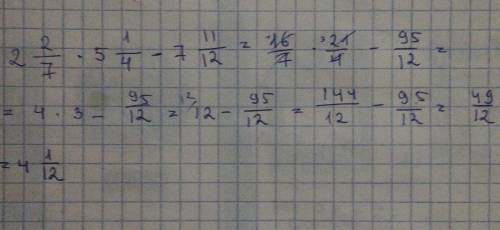 2 2/7 · 5 1/4 - 7 11/12 = 16/7 · 21/4 - 95/12 =
= 4 · 3 - 95/12 = 12 - 95/12 = 144/12 - 95/12 = 49/12
= 4 1/12